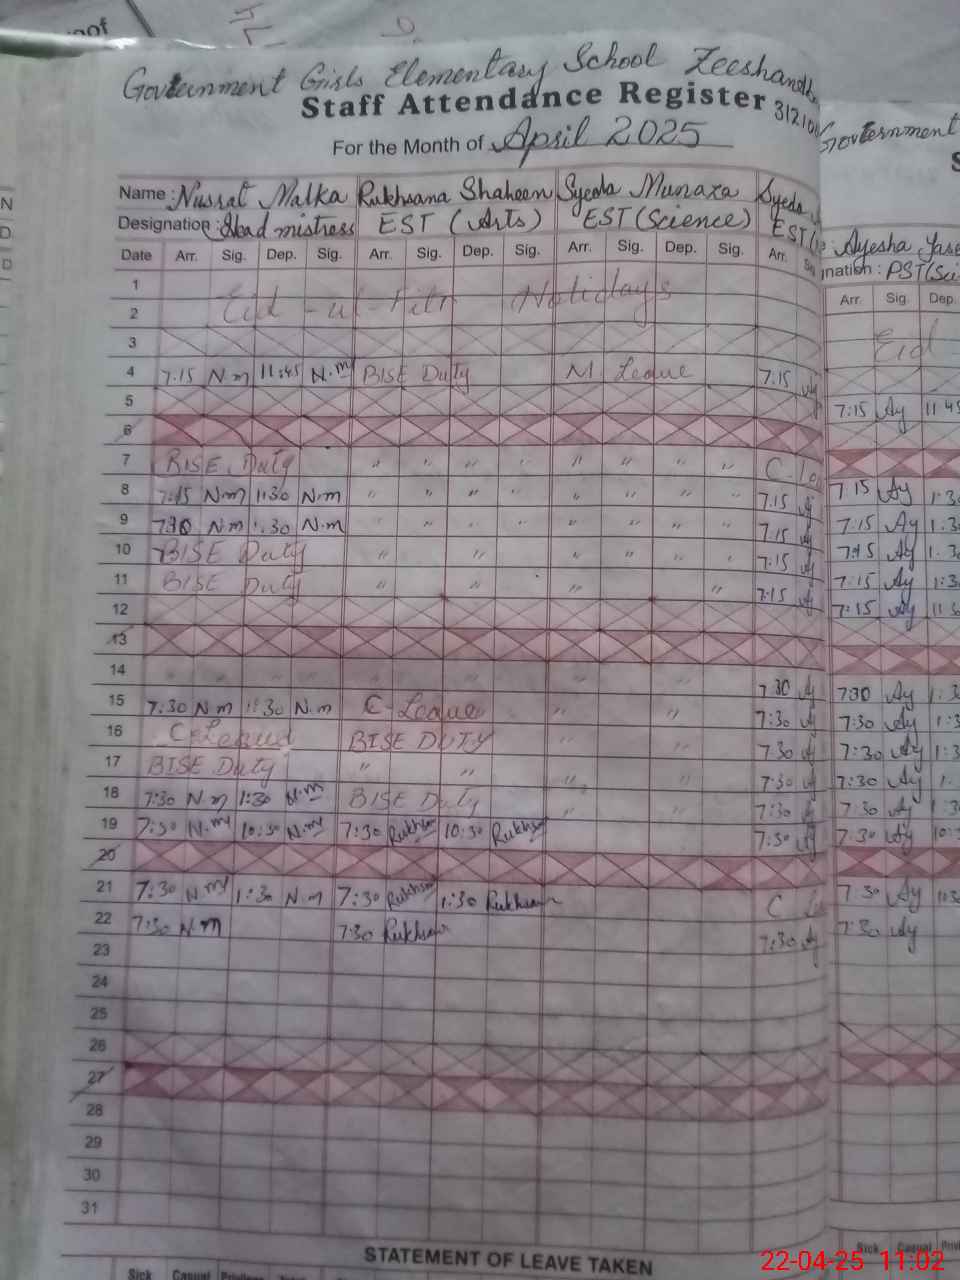 Government Girls Elementary School
Staff Attendance Register
For the Month of April 2025
Government
Name : Nusrat Malka Rukhsana Shaheen Syeda Munaza Syeda
Designation : Head mistress EST (Arts) EST (Science) EST
Ayesha
nation : PST (Sci
Date Arr. Sig. Dep. Sig. Arr. Sig. Dep. Sig. Arr. Sig. Dep. Sig. Arr. Arr. Sig. Dep.
1
2 Eid - ul - Fitr Holidays Eid
3
4 7.15 N.m 11:45 N.m BISE Duty M Leave 7.15 7:15 Ay 11 45
5
6
7 BISE Duty " " " " " " " " C.
8 7:15 N.m 1:30 N.m " " " " " " " " 7.15 7.15 Ay 1:3
9 730 N.m 1:30 N.m " " " " " " " " 7.15 7:15 Ay 1:3
10 BISE Duty " " " " " " 7:15 Ay 1:3
11 BISE Duty " " " " 7:15 7:15 Ay 1:3
12 7:15 Ay
13
14 7 30 730 Ay 1:3
15 7:30 N.m 1:30 N.m C-Leave " " 7:30 7:30 Ay 1:3
16 C-Leave BISE DUTY " " 7.30 7:30 Ay 1:3
17 BISE Duty " " " " 7:30 7:30 Ay 1.
18 7:30 N.m 1:30 N.m BISE Duty " " 7:30 7:30 Ay 1:3
19 7:30 N.m 10:30 N.m 7:30 Rukhsa 10:30 Rukhsa 7:30 7.30 Ay 10:
20
21 7:30 N.m 1:30 N.m 7:30 Rukhsa 1:30 Rukhsana C 7.30 Ay
22 7:30 N.m 7:30 Rukhsa 7:30 7:30 Ay
23
24
25
26
27
28
29
30
31
STATEMENT OF LEAVE TAKEN
Sick Casual Sick Casual
22-04-25 11:02